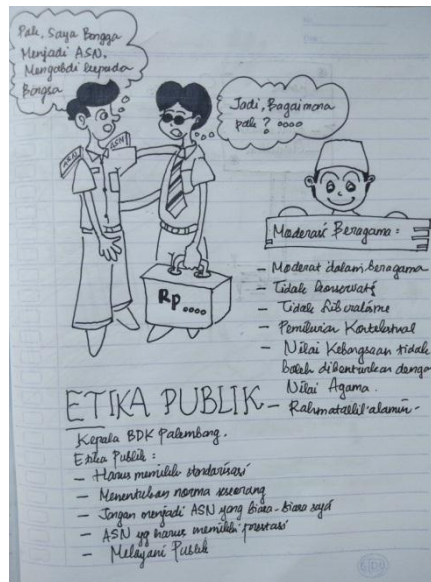 Pak, Saya Bangga
Menjadi ASN,
Mengabdi kepada
Bangsa
Jadi, Bagaimana
pak ? ....
ASN
Rp ....
Moderasi Beragama :
- Moderat dalam beragama
- Tidak konservatif
- Tidak Liberalisme
- Pemikiran Kontekstual
- Nilai Kebangsaan tidak
boleh dibenturkan dengan
Nilai Agama.
- Rahmatallil'alamin.
ETIKA PUBLIK
Kepala BDK Palembang.
Etika Publik :
- Harus memiliki standarisasi
- Menentukan norma seseorang
- Jangan menjadi ASN yang biasa-biasa saja
- ASN yg harus memiliki prestasi
- Melayani Publik